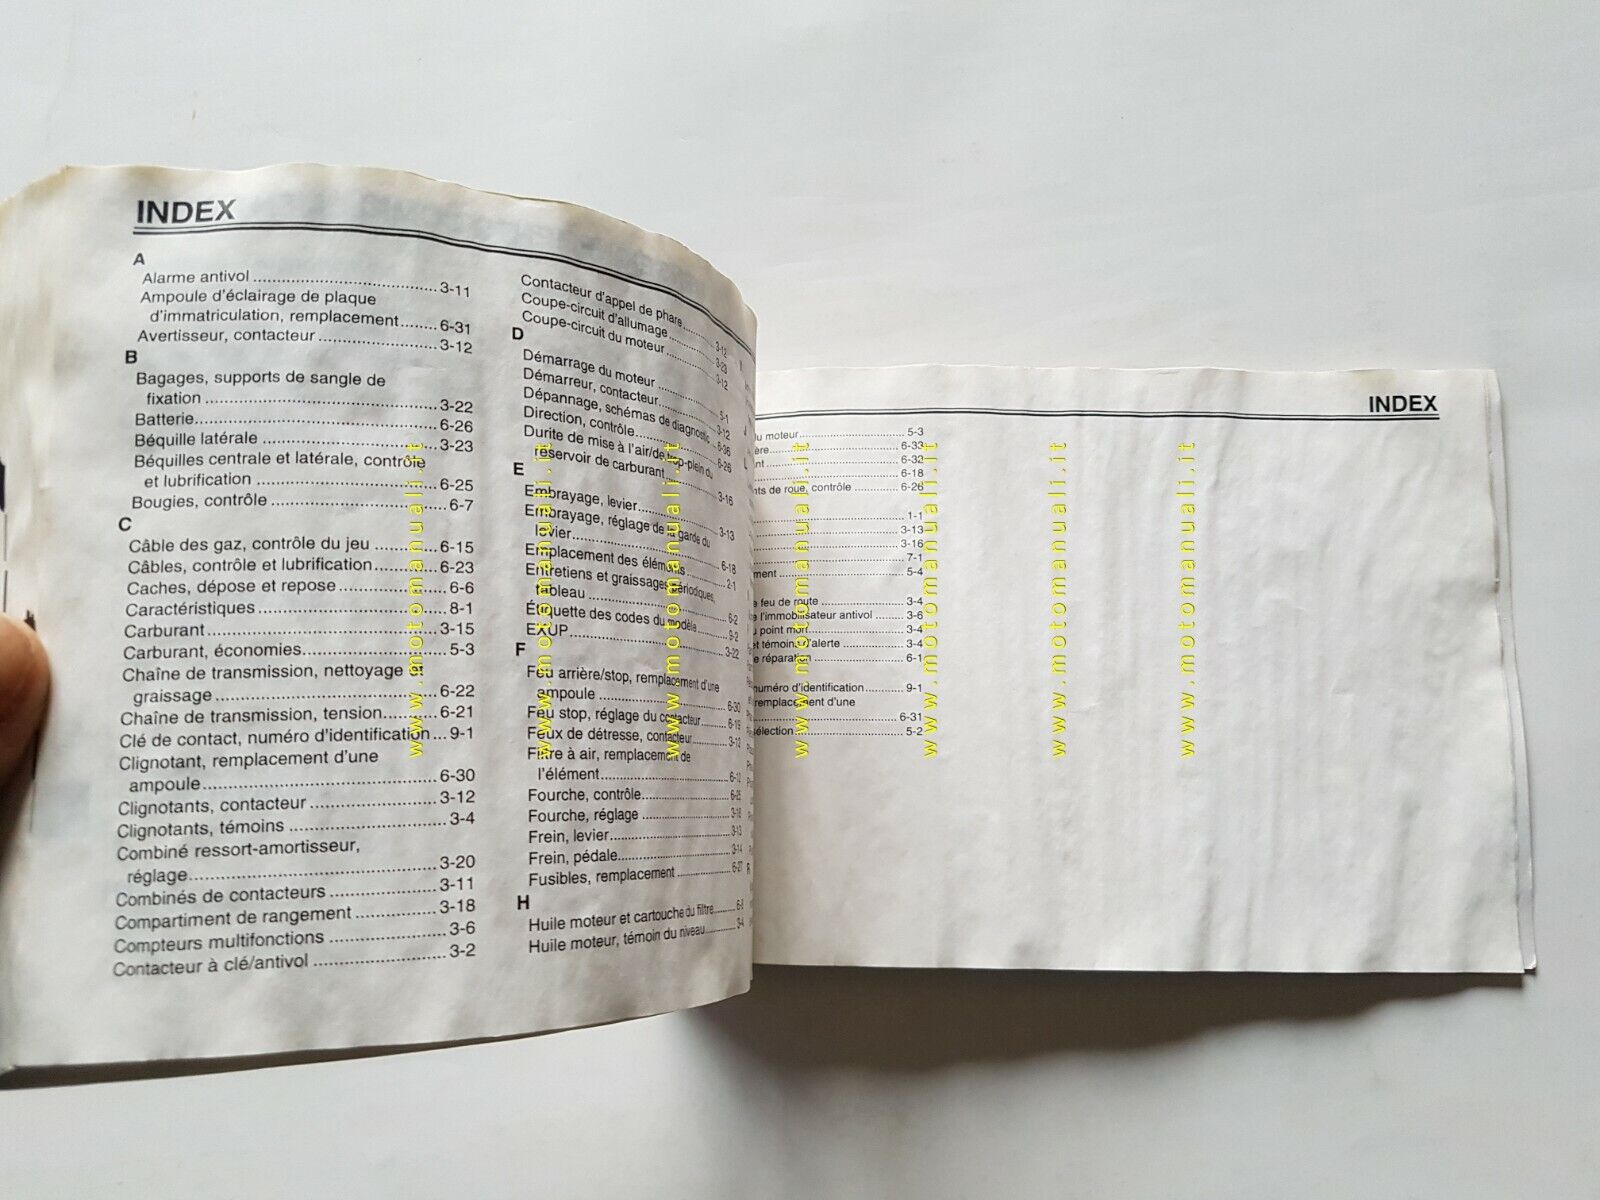 INDEX
A
Alarme antivol ........ 3-11
Ampoule d'éclairage de plaque
d'immatriculation, remplacement ........ 6-31
Avertisseur, contacteur ........ 3-12
B
Bagages, supports de sangle de
fixation ........ 3-22
Batterie ........ 6-26
Béquille latérale ........ 3-23
Béquilles centrale et latérale, contrôle
et lubrification ........ 6-25
Bougies, contrôle ........ 6-7
C
Câble des gaz, contrôle du jeu ........ 6-15
Câbles, contrôle et lubrification ........ 6-23
Caches, dépose et repose ........ 6-6
Caractéristiques ........ 8-1
Carburant ........ 3-15
Carburant, économies ........ 5-3
Chaîne de transmission, nettoyage et
graissage ........ 6-22
Chaîne de transmission, tension ........ 6-21
Clé de contact, numéro d'identification ... 9-1
Clignotant, remplacement d'une
ampoule ........ 6-30
Clignotants, contacteur ........ 3-12
Clignotants, témoins ........ 3-4
Combiné ressort-amortisseur,
réglage ........ 3-20
Combinés de contacteurs ........ 3-11
Compartiment de rangement ........ 3-18
Compteurs multifonctions ........ 3-6
Contacteur à clé/antivol ........ 3-2
Contacteur d'appel de phare ........ 3-12
Coupe-circuit d'allumage ........ 3-23
Coupe-circuit du moteur ........ 3-12
D
Démarrage du moteur ........ 5-1
Démarreur, contacteur ........ 3-12
Dépannage, schémas de diagnostic ........ 6-36
Direction, contrôle ........ 6-26
Durite de mise à l'air/de trop-plein du
réservoir de carburant ........ 3-16
E
Embrayage, levier ........ 3-13
Embrayage, réglage de la garde du
levier ........ 6-18
Emplacement des éléments ........ 2-1
Entretiens et graissages périodiques,
tableau ........ 6-2
Étiquette des codes du modèle ........ 9-2
EXUP ........ 3-22
F
Feu arrière/stop, remplacement d'une
ampoule ........ 6-30
Feu stop, réglage du contacteur ........ 6-19
Feux de détresse, contacteur ........ 3-13
Filtre à air, remplacement de
l'élément ........
Fourche, contrôle ........
Fourche, réglage ........ 3-18
Frein, levier ........ 3-13
Frein, pédale ........ 3-14
Fusibles, remplacement ........ 6-27
H
Huile moteur et cartouche du filtre ........
Huile moteur, témoin du niveau ........
INDEX
u moteur ........ 5-3
ère ........ 6-33
nt ........ 6-32
6-18
nts de roue, contrôle ........ 6-26
1-1
3-13
3-16
7-1
ment ........ 5-4
e feu de route ........ 3-4
e l'immobilisateur antivol ........ 3-6
u point mort ........ 3-4
et témoins d'alerte ........ 3-4
e réparation ........ 6-1
numéro d'identification ........ 9-1
remplacement d'une
6-31
sélection ........ 5-2
www.motomanuali.it
www.motomanuali.it
www.motomanuali.it
www.motomanuali.it
www.motomanuali.it
www.motomanuali.it
www.motomanuali.it